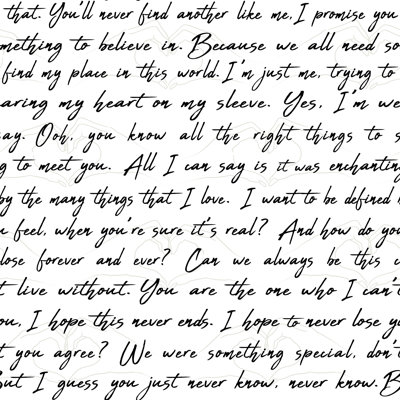 that. You'll never find another like me, I promise you
mething to believe in. Because we all need so
find my place in this world. I'm just me, trying to
aring my heart on my sleeve. Yes, I'm we
ay. Ooh, you know all the right things to s
g to meet you. All I can say is it was enchanting
by the many things that I love. I want to be defined b
u feel, when you're sure it's real? And how do you
lose forever and ever? Can we always be this c
t live without. You are the one who I can't
ou, I hope this never ends. I hope to never lose yo
t you agree? We were something special, don't
But I guess you just never know, never know. B